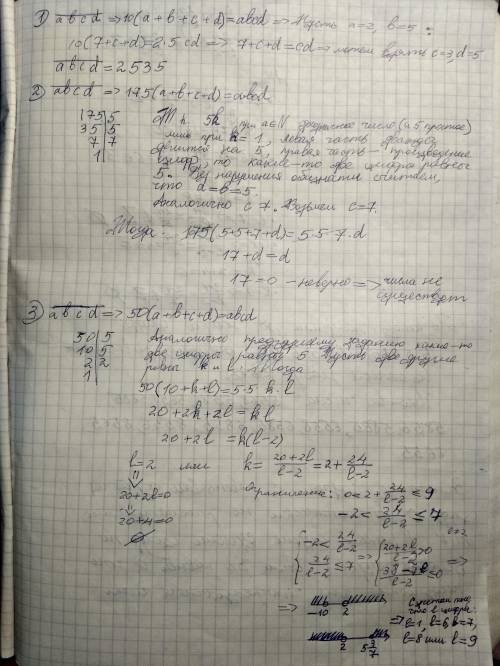 1) abcd => 10(a+b+c+d)=abcd => Пусть a=2, b=5:
10(7+c+d)=2·5 cd => 7+c+d=cd => можем взять c=3, d=5
abcd = 2535
2) abcd => 175(a+b+c+d)=abcd
175|5
35|5
7|7
1|
Т.к. 5k при k∈N двузначное число (а 5 простое)
лишь при k=1, левая часть дважды
делится на 5, правая часть - произведение
цифр, то какие-то две цифры равны
5. Без нарушения общности считаем,
что a=b=5.
Аналогично с 7. Возьмем c=7.
Тогда: 175(5+5+7+d)=5·5·7·d
17+d=d
17=0 - неверно => числа не
существует
3) abcd => 50(a+b+c+d)=abcd
50|5
10|5
2|2
1|
Аналогично предыдущему заданию какие-то
две цифры равны 5. Пусть две другие
равны k и l. Тогда
50(10+k+l)=5·5 k·l
20+2k+2l=kl
20+2l =k(l-2)
l=2 или k= 20+2l / l-2 =2+ 24 / l-2
20+2l=0
20+4=0
∅
Ограничение: 0<2+ 24 / l-2 ≤9
-2< 24 / l-2 ≤7
{ -2< 24 / l-2
24 / l-2 ≤7 => { 20+2l / l-2 >0
38-7l / l-2 ≤0 =>
=> -10 2
2 5 3/7
цифры:
l=6, l=7,
l=8 или l=9